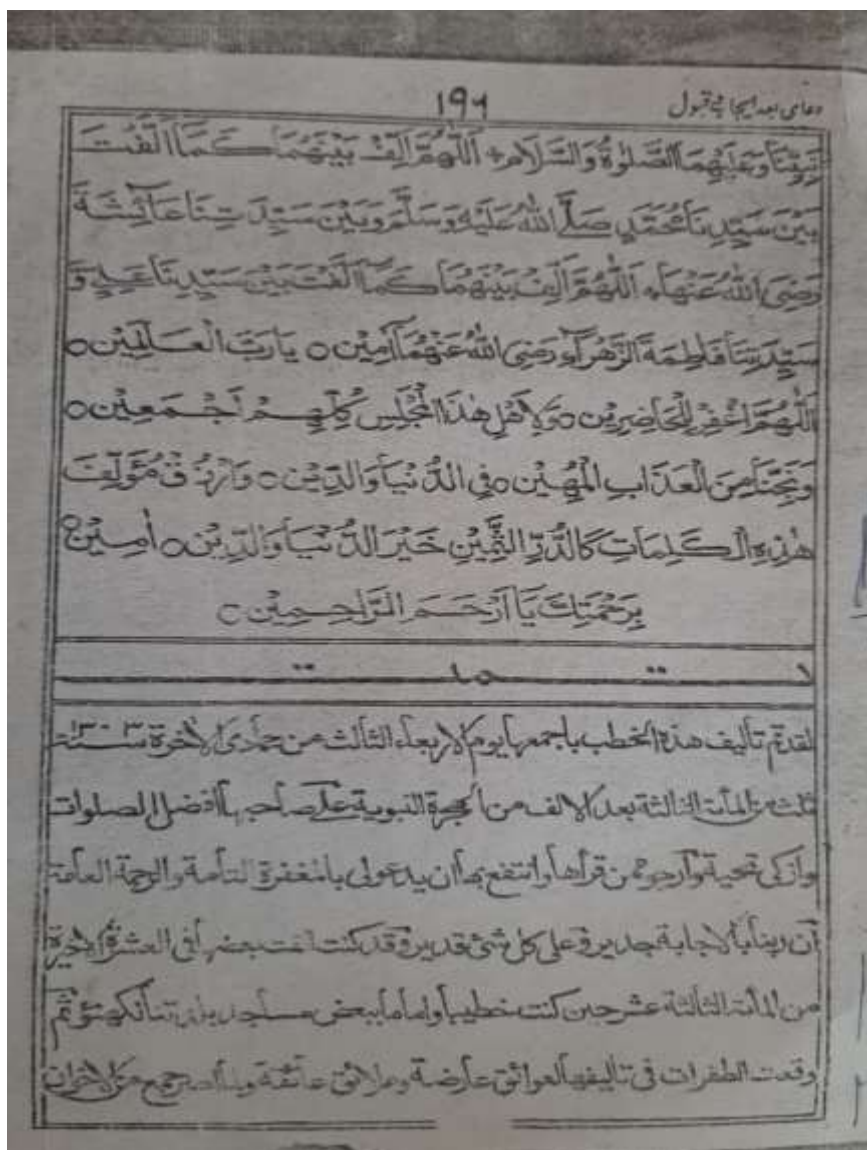 ۱۹۶
دعای بعد ایجاب و قبول
نَبِيِّنَا وَعَلَيْهِمَا الصَّلٰوةُ وَالسَّلَامُ + اَللّٰهُمَّ اَلِّفْ بَيْنَهُمَا كَمَا اَلَّفْتَ
بَيْنَ سَيِّدِنَا مُحَمَّدٍ صَلَّى اللهُ عَلَيْهِ وَسَلَّمَ وَبَيْنَ سَيِّدَتِنَا عَائِشَةَ
رَضِيَ اللهُ عَنْهَا ٥ اَللّٰهُمَّ اَلِّفْ بَيْنَهُمَا كَمَا اَلَّفْتَ بَيْنَ سَيِّدِنَا عَلِيٍّ وَّ
سَيِّدَتِنَا فَاطِمَةَ الزَّهْرَاءِ رَضِيَ اللهُ عَنْهُمَا آمِيْن ٥ يَا رَبَّ الْعَالَمِيْن ٥
اَللّٰهُمَّ اغْفِرْ لِلْحَاضِرِيْن ٥ وَلِاَهْلِ هٰذَا الْمَجْلِسِ كُلِّهِمْ اَجْمَعِيْن ٥
وَنَجِّنَا مِنَ الْعَذَابِ الْمُهِيْن ٥ فِي الدُّنْيَا وَالدِّيْن ٥ وَارْزُقْ مُؤَلِّفَ
هٰذِهِ الْكَلِمَاتِ كَالدُّرِّ الثَّمِيْنِ خَيْرَ الدُّنْيَا وَالدِّيْن ٥ اٰمِيْن ٥
بِرَحْمَتِكَ يَا اَرْحَمَ الرَّاحِمِيْن ٥
تمت
لقد تم تأليف هذه الخطب باجمعها يوم الاربعاء الثالث من جمادى الاخرة سنة ۱۳۰۳
ثلث من المأة الثالثة بعد الالف من الهجرة النبوية على صاحبها افضل الصلوات
وازكى تحية وارجو ممن قرأها وانتفع بها ان يدعو لى بالمغفرة التامة والرحمة العامة
ان ربنا بالاجابة جدير وعلى كل شئ قدير وقد كنت الفت بعضها فى العشرة الاخيرة
من المأة الثالثة عشر حين كنت خطيبا واماما ببعض مساجد بلدتنا لكهنؤ ثم
وقعت الطفرات فى تاليفها لعوائق عارضة وعلائق عائقة ولما اصر جمع من الاخوان